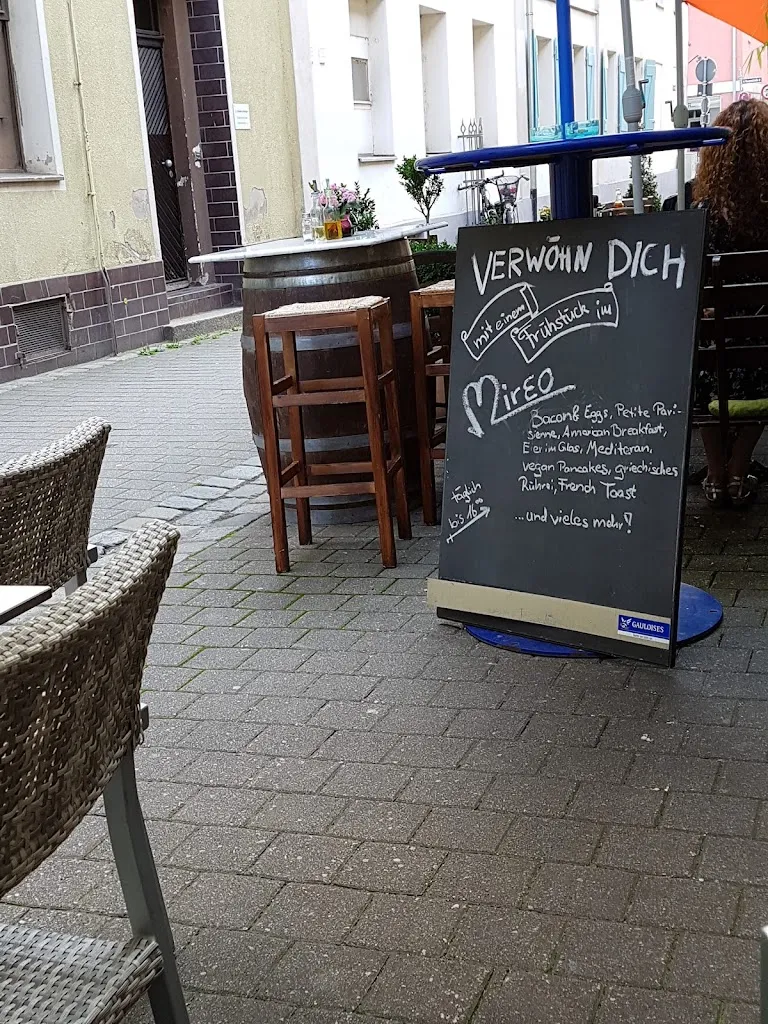 VERWÖHN DICH
mit einem
Frühstück im
Mireo
Bacon& Eggs, Petite Pari-
sienne, American Breakfast,
Eier im Glas, Mediteran,
vegan Pancakes, griechisches
Rührei, French Toast
...und vieles mehr!
täglich
bis 16⁰⁰
GAULOISES